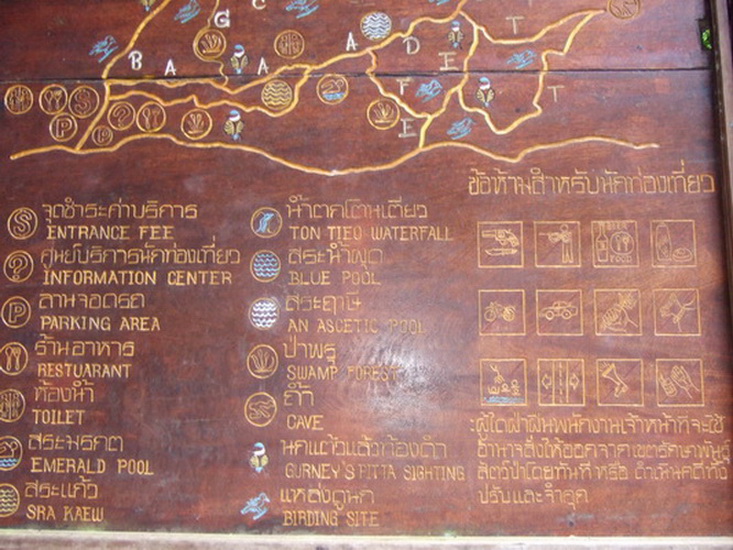 C
G
T
B A A A D
E T
F
E
ข้อห้ามสำหรับนักท่องเที่ยว
S จุดชำระค่าบริการ
ENTRANCE FEE
? ศูนย์บริการนักท่องเที่ยว
INFORMATION CENTER
P ลานจอดรถ
PARKING AREA
ร้านอาหาร
RESTUARANT
ห้องน้ำ
TOILET
สระมรกต
EMERALD POOL
สระแก้ว
SRA KAEW
น้ำตกโตนเตียว
TON TIEO WATERFALL
สระน้ำผุด
BLUE POOL
สระฤาษี
AN ASCETIC POOL
ป่าพรุ
SWAMP FOREST
ถ้ำ
CAVE
นกแต้วแล้วท้องดำ
GURNEY'S PITTA SIGHTING
แหล่งดูนก
BIRDING SITE
FOOD
ผู้ใดฝ่าฝืนพนักงานเจ้าหน้าที่จะใช้
อำนาจสั่งให้ออกจากเขตรักษาพันธุ์
สัตว์ป่าโดยทันที หรือ ดำเนินคดีทั้ง
ปรับและจำคุก